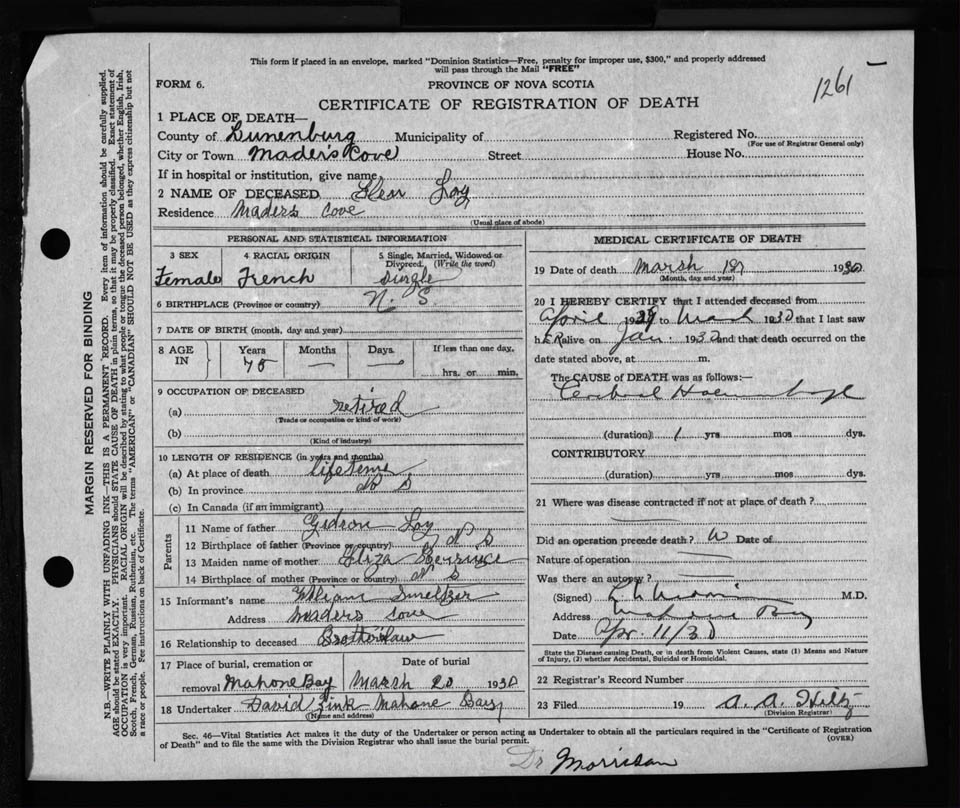 This form if placed in an envelope, marked "Dominion Statistics—Free, penalty for improper use, $300," and properly addressed
will pass through the Mail "FREE"
1261
FORM 6.
PROVINCE OF NOVA SCOTIA
CERTIFICATE OF REGISTRATION OF DEATH
1 PLACE OF DEATH—
County of Lunenburg Municipality of Registered No.
(For use of Registrar General only)
City or Town Mader's Cove Street House No.
If in hospital or institution, give name
2 NAME OF DECEASED
Residence Maders Cove
(Usual place of abode)
PERSONAL AND STATISTICAL INFORMATION
3 SEX
Female
4 RACIAL ORIGIN
French
5 Single, Married, Widowed or
Divorced. (Write the word)
Single
6 BIRTHPLACE (Province or country) N. S.
7 DATE OF BIRTH (month, day and year)
8 AGE IN
Years
75
Months
—
Days
—
If less than one day.
hrs. or min.
9 OCCUPATION OF DECEASED
(a) retired
(Trade or occupation or kind of work)
(b)
(Kind of industry)
10 LENGTH OF RESIDENCE (in years and months)
(a) At place of death life time
(b) In province N S
(c) In Canada (if an immigrant)
Parents
11 Name of father
12 Birthplace of father (Province or country) N S
13 Maiden name of mother Eliza
14 Birthplace of mother (Province or country) N S
15 Informant's name Smeltzer
Address Maders Cove
16 Relationship to deceased Brotherlaw
17 Place of burial, cremation or
removal Mahone Bay
Date of burial
March 20 1930
18 Undertaker David Zink Mahone Bay
(Name and address)
MEDICAL CERTIFICATE OF DEATH
19 Date of death March 1930
(Month, day and year)
20 I HEREBY CERTIFY that I attended deceased from
April 1929 to March 1930 that I last saw
h er alive on Jan. 1930 and that death occurred on the
date stated above, at m.
The CAUSE of DEATH was as follows:—
Cerebral Haemorrhage
(duration) 1 yrs mos dys.
CONTRIBUTORY
(duration) yrs mos dys.
21 Where was disease contracted if not at place of death?
Did an operation precede death? Date of
Nature of operation
Was there an autopsy?
(Signed) M.D.
Address Mahone Bay
Date Apr. 11/30
State the Disease causing Death, or in death from Violent Causes, state (1) Means and Nature
of Injury, (2) whether Accidental, Suicidal or Homicidal.
22 Registrar's Record Number
23 Filed 19 A. A. Hiltz
(Division Registrar)
Sec. 46—Vital Statistics Act makes it the duty of the Undertaker or person acting as Undertaker to obtain all the particulars required in the "Certificate of Registration
of Death" and to file the same with the Division Registrar who shall issue the burial permit.
(OVER)
Dr Morrison
MARGIN RESERVED FOR BINDING
N.B.—WRITE PLAINLY WITH UNFADING INK—THIS IS A PERMANENT RECORD. Every item of information should be carefully supplied.
AGE should be stated EXACTLY. PHYSICIANS should STATE CAUSE OF DEATH in plain terms, so that it may be properly classified. Exact statement of
OCCUPATION is very important. RACIAL ORIGIN will be described by stating to what people or tongue the deceased person belonged, whether English, Irish,
Scotch, French, German, Russian, Ruthenian, etc. The terms "AMERICAN" or "CANADIAN" SHOULD NOT BE USED as they express citizenship but not
a race or people. Fee instructions on back of Certificate.